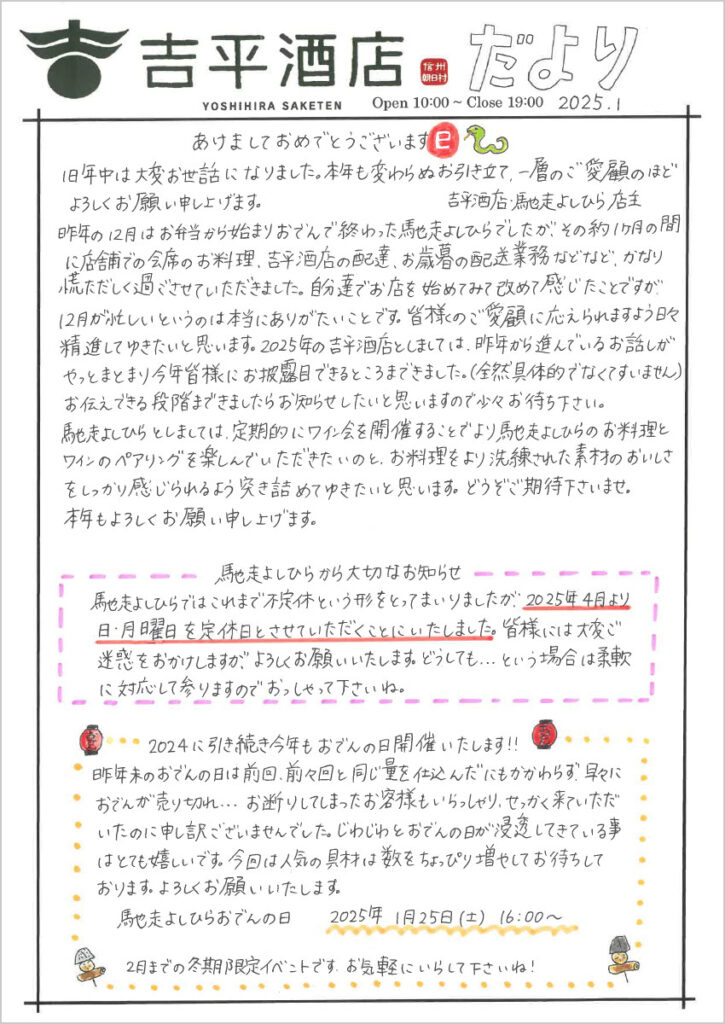 吉平酒店 信州朝日村 だより
YOSHIHIRA SAKETEN Open 10:00 ~ Close 19:00 2025.1
あけましておめでとうございます 巳
旧年中は大変お世話になりました。本年も変わらぬお引き立て、一層のご愛顧のほど
よろしくお願い申し上げます。 吉平酒店・馳走よしひら店主
昨年の12月はお弁当から始まりおでんで終わった馳走よしひらでしたが、その約1ヶ月の間
に店舗での会席のお料理、吉平酒店の配達、お歳暮の配送業務などなど、かなり
慌ただしく過ごさせていただきました。自分達でお店を始めてみて改めて感じたことですが
12月が忙しいというのは本当にありがたいことです。皆様のご愛顧に応えられますよう日々
精進してゆきたいと思います。2025年の吉平酒店としましては、昨年から進んでいるお話しが
やっとまとまり今年皆様にお披露目できるところまできました。(全然具体的でなくてすいません)
お伝えできる段階まできましたらお知らせしたいと思いますので少々お待ち下さい。
馳走よしひらとしましては、定期的にワイン会を開催することでより馳走よしひらのお料理と
ワインのペアリングを楽しんでいただきたいのと、お料理をより洗練された素材のおいしさ
をしっかり感じられるよう突き詰めてゆきたいと思います。どうぞご期待下さいませ。
本年もよろしくお願い申し上げます。
馳走よしひらから大切なお知らせ
馳走よしひらではこれまで不定休という形をとってまいりましたが、2025年4月より
日・月曜日を定休日とさせていただくことにいたしました。皆様には大変ご
迷惑をおかけしますが、よろしくお願いいたします。どうしても…という場合は柔軟
に対応して参りますのでおっしゃって下さいね。
2024に引き続き今年もおでんの日開催いたします!!
昨年末のおでんの日は前回、前々回と同じ量を仕込んだにもかかわらず、早々に
おでんが売り切れ… お断りしてしまったお客様もいらっしゃり、せっかく来ていただ
いたのに申し訳ございませんでした。じわじわとおでんの日が浸透してきている事
はとても嬉しいです。今回は人気の具材は数をちょっぴり増やしてお待ちして
おります。よろしくお願いいたします。
馳走よしひらおでんの日 2025年 1月25日(土) 16:00〜
2月までの冬期限定イベントです。お気軽にいらして下さいね!